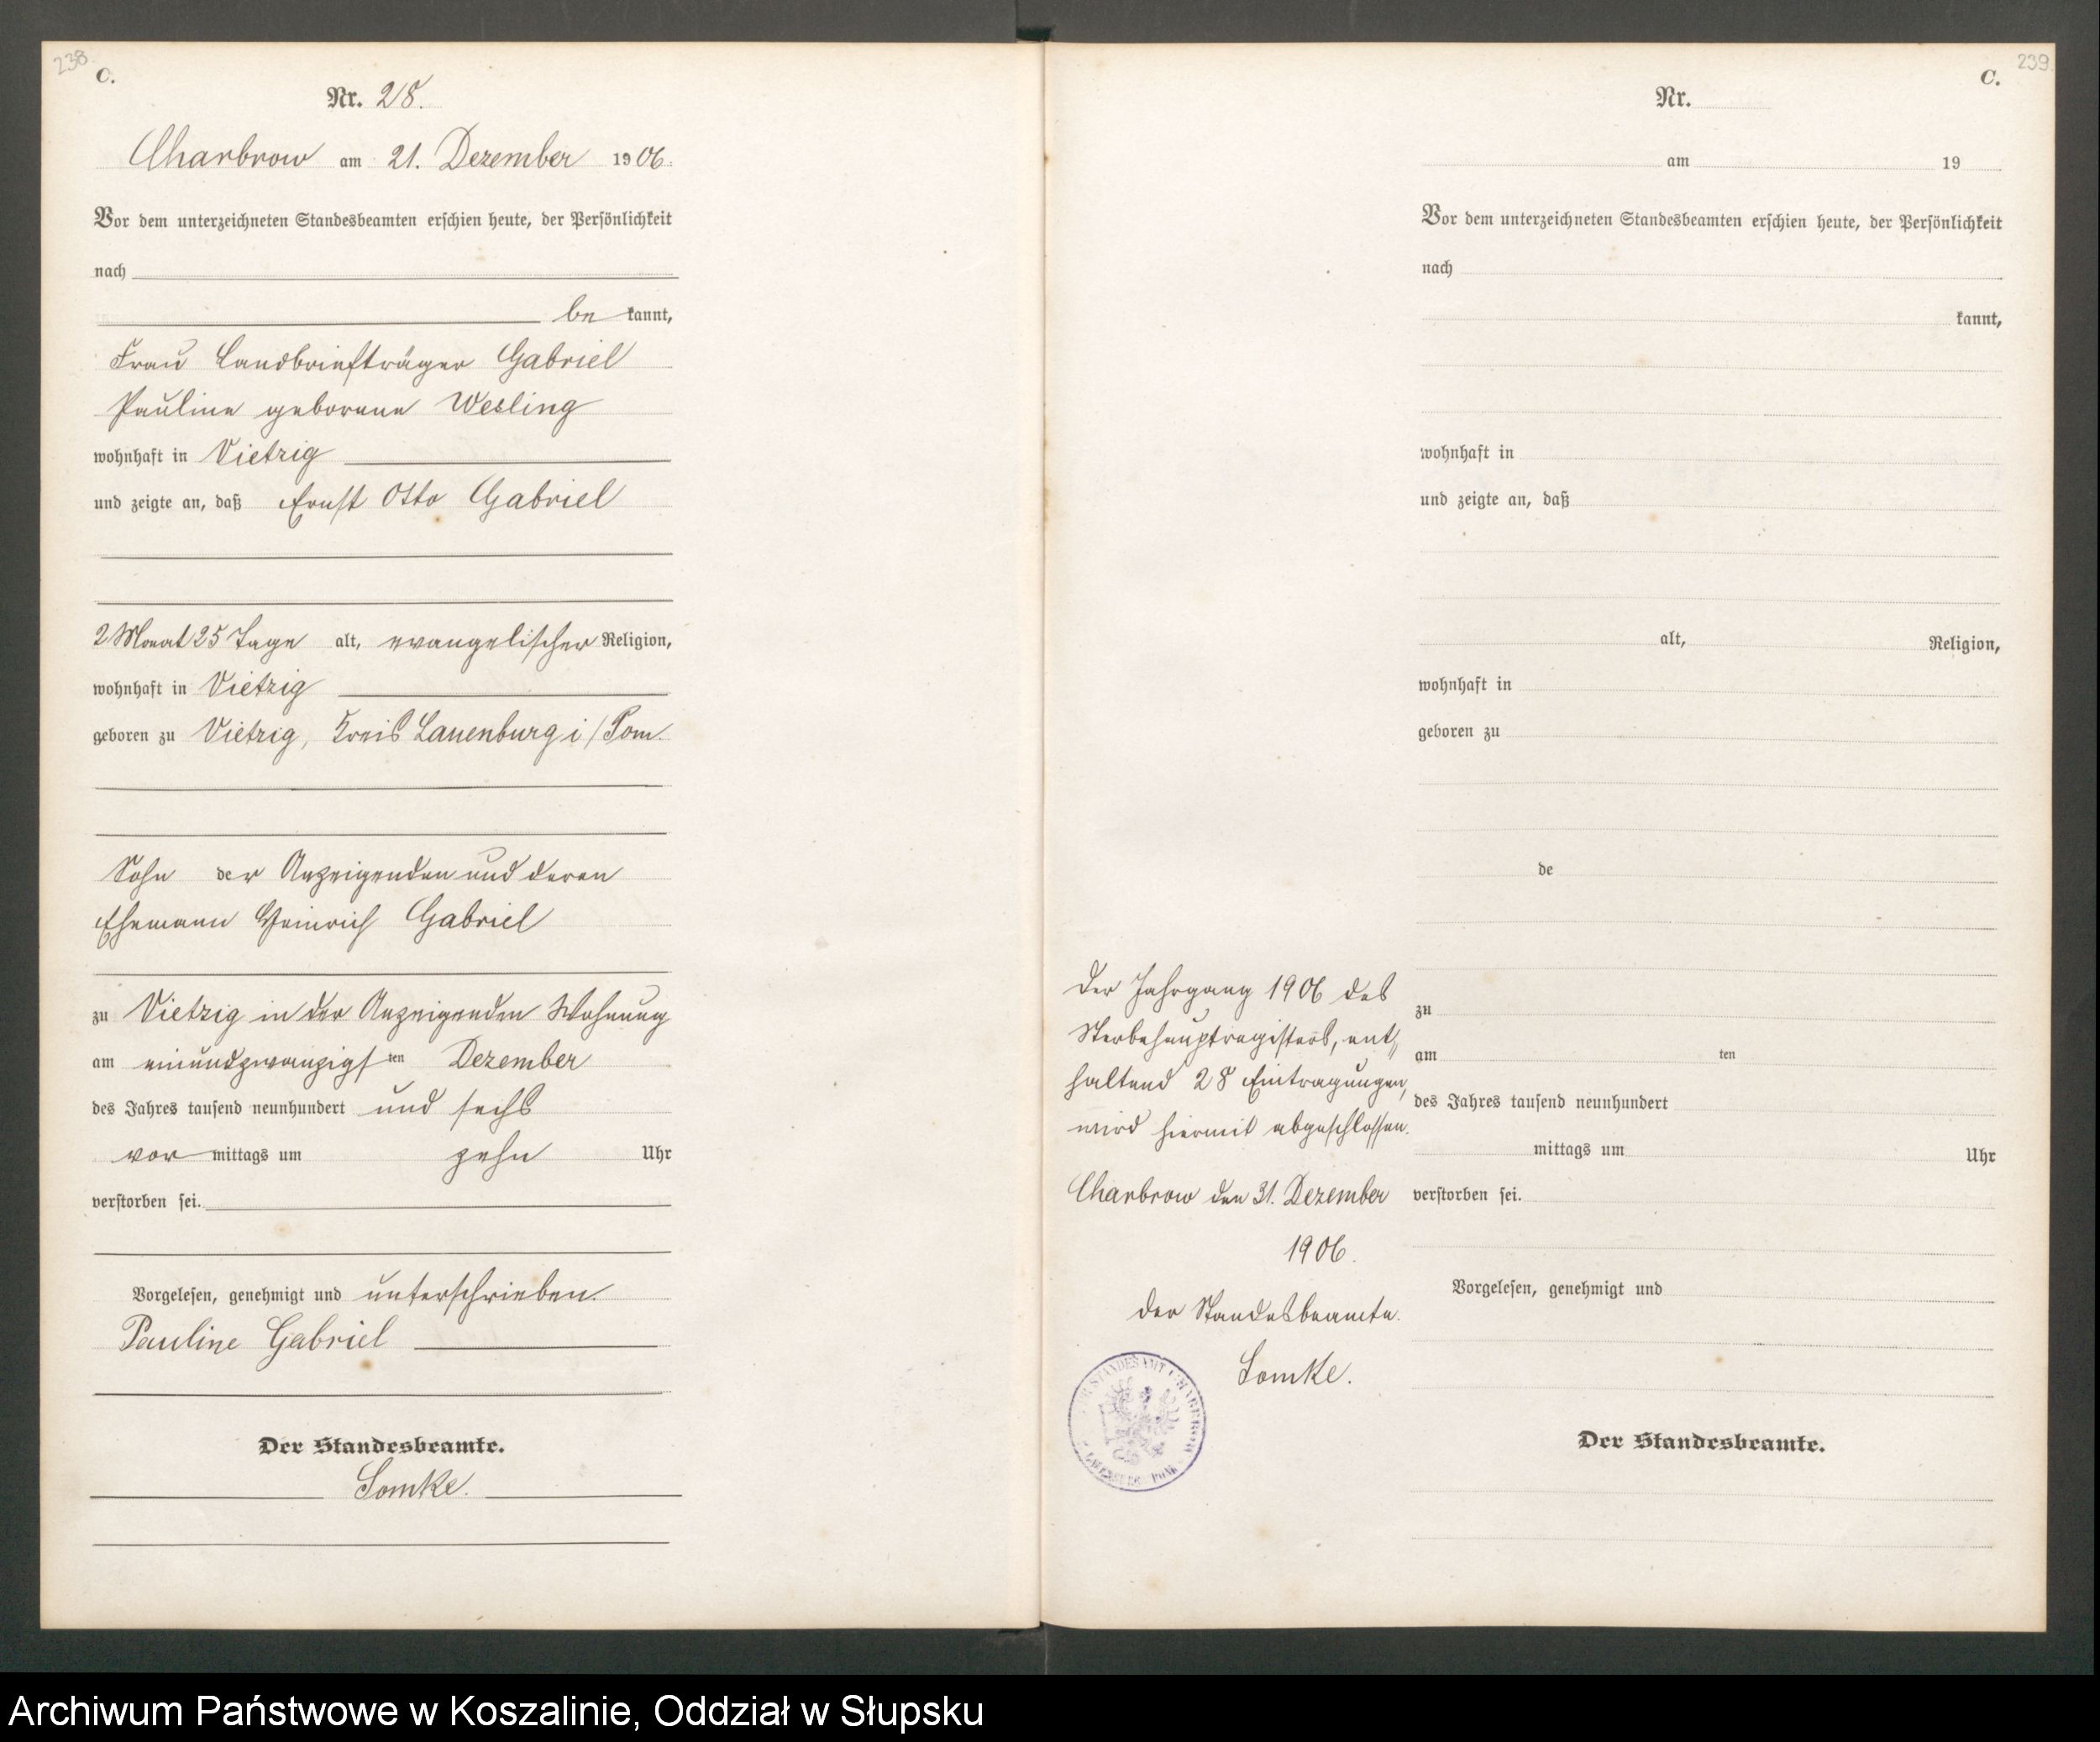 238.
C.
Nr. 28.
Charbrow am 21. Dezember 1906.
Vor dem unterzeichneten Standesbeamten erschien heute, der Persönlichkeit
nach
be kannt,
Frau Landbriefträger Gabriel
Pauline geborene Wesling
wohnhaft in Vietzig
und zeigte an, daß Ernst Otto Gabriel
2 Monat 25 Tage alt, evangelischer Religion,
wohnhaft in Vietzig
geboren zu Vietzig, Kreis Lauenburg i/Pom.
Sohn der Anzeigenden und deren
Ehemann Heinrich Gabriel
zu Vietzig in der Anzeigenden Wohnung
am einundzwanzigsten Dezember
des Jahres tausend neunhundert und sechs
vor mittags um zehn Uhr
verstorben sei.
Vorgelesen, genehmigt und unterschrieben.
Pauline Gabriel
Der Standesbeamte.
Lomke.
239.
C.
Nr.
am 19
Vor dem unterzeichneten Standesbeamten erschien heute, der Persönlichkeit
nach
kannt,
wohnhaft in
und zeigte an, daß
alt, Religion,
wohnhaft in
geboren zu
de
zu
am ten
des Jahres tausend neunhundert
mittags um Uhr
verstorben sei.
Vorgelesen, genehmigt und
Der Standesbeamte.
Der Jahrgang 1906 des
Sterbehauptregisters, ent„
haltend 28 Eintragungen,
wird hiermit abgeschlossen.
Charbrow den 31. Dezember
1906.
Der Standesbeamte.
Lomke.
STANDESAMT CHARBROW
Archiwum Państwowe w Koszalinie, Oddział w Słupsku